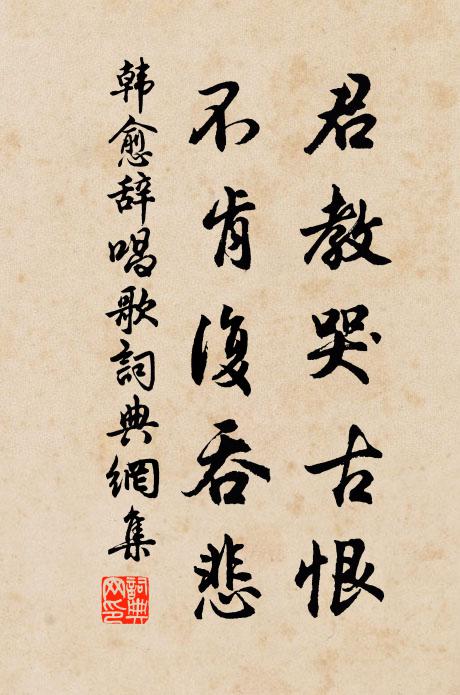 君教哭古恨
不肯復吞悲
韩愈辞唱歌詞典網集
詞典